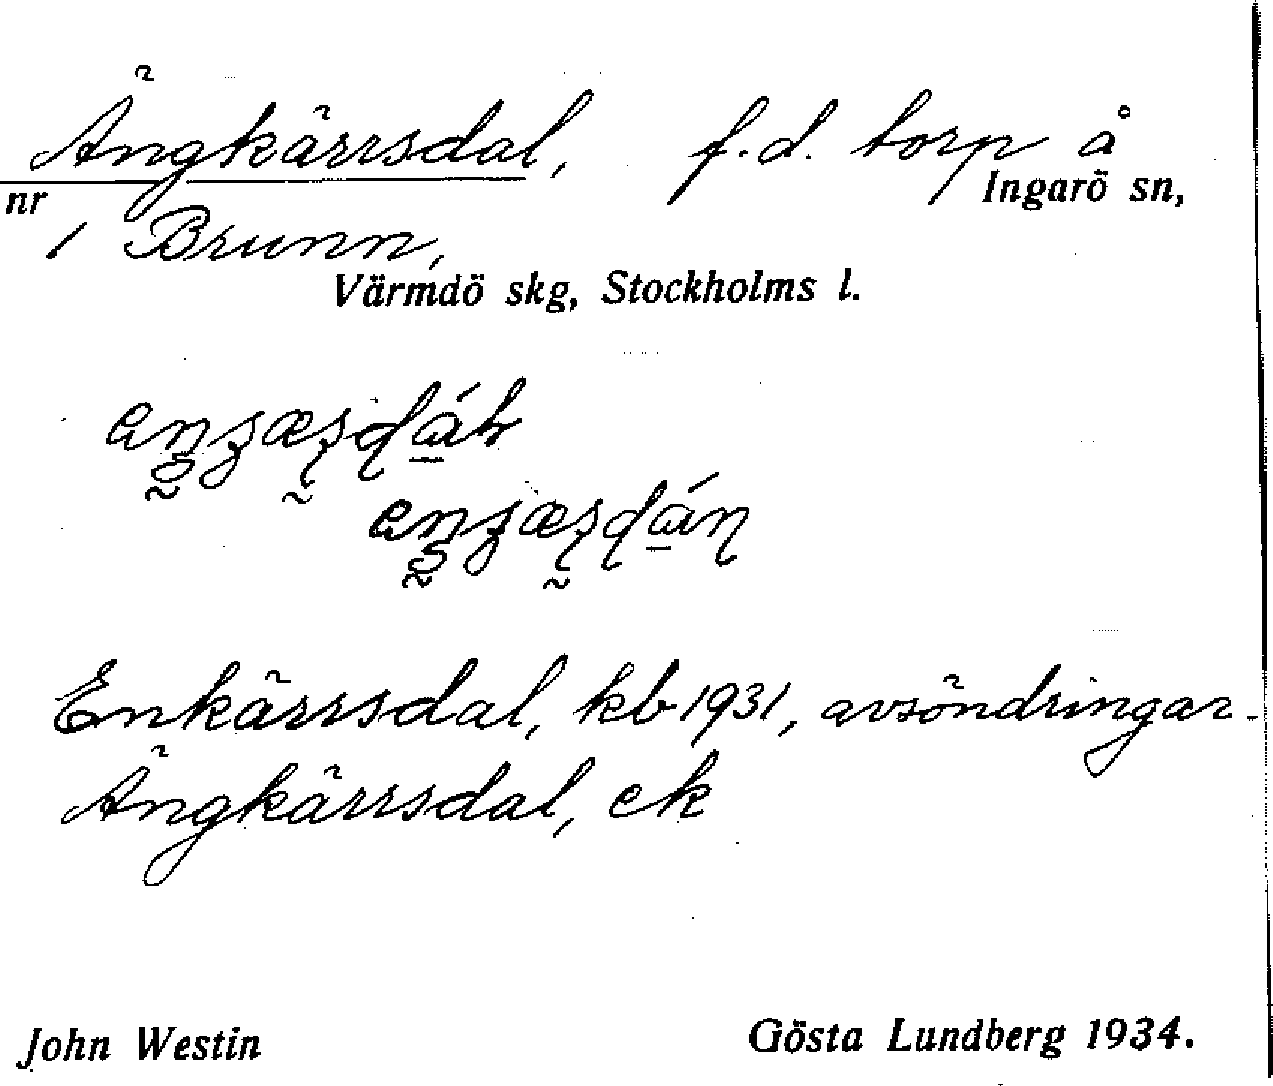 Ängkärrsdal, f.d. torp å
nr 1 Brunn, Ingarö sn,
Värmdö skg, Stockholms l.
Enkärrsdal, kb 1931, avsöndringar.
Ängkärrsdal, ek
John Westin Gösta Lundberg 1934.